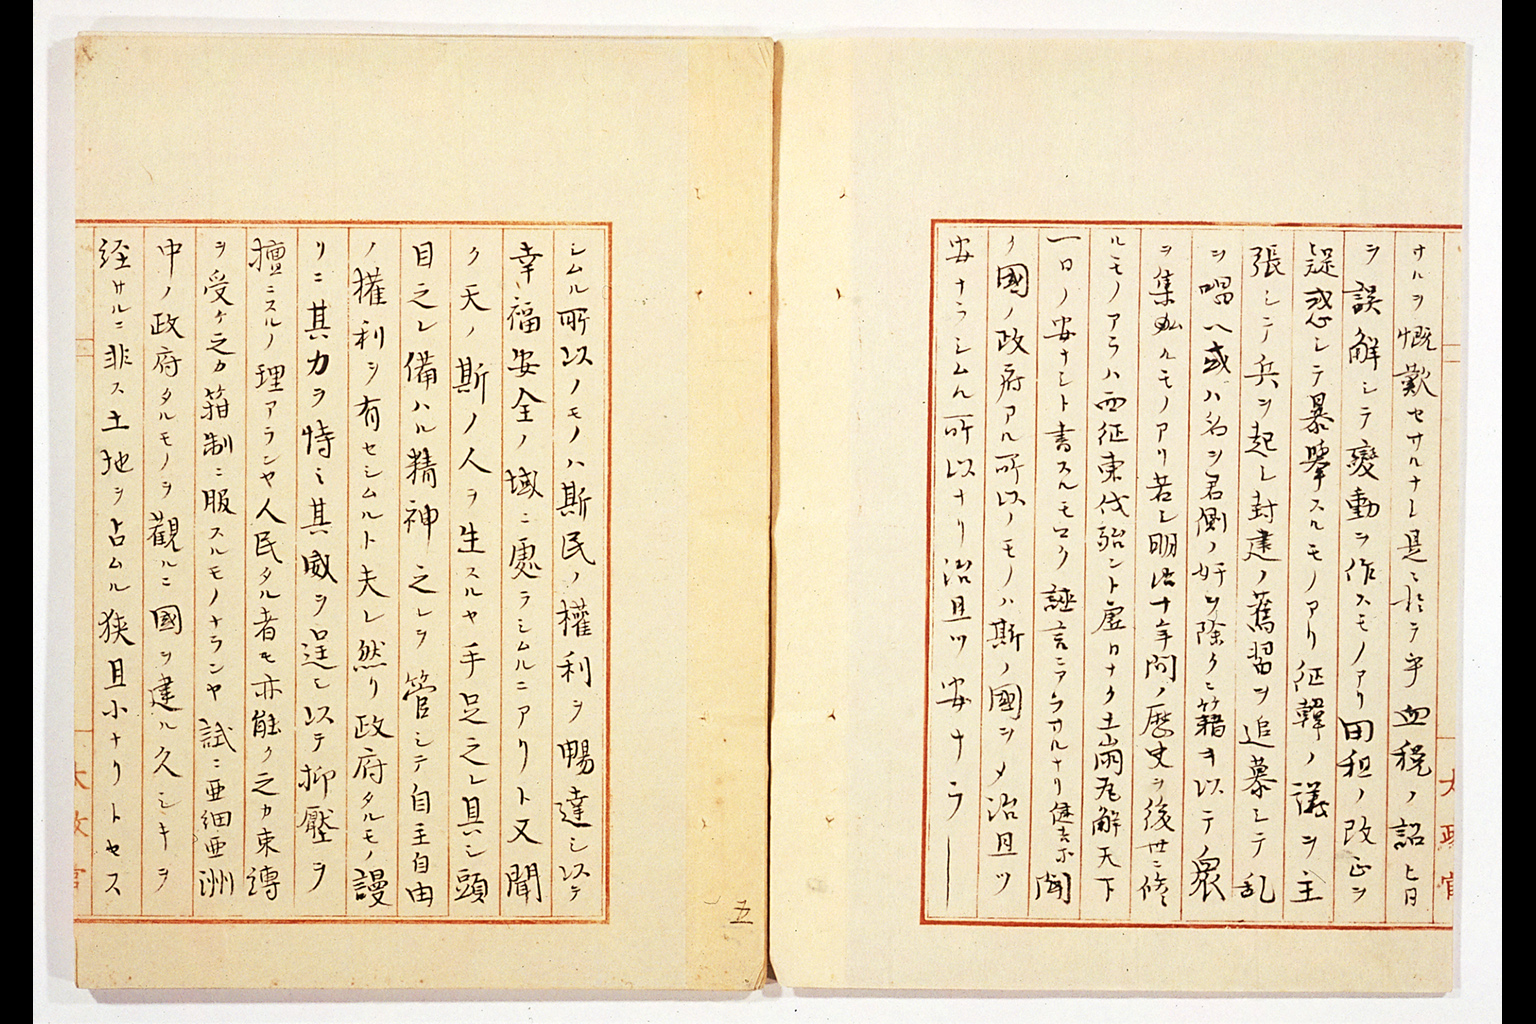 サルヲ慨歎セサルナシ是ニ於テ乎血税ノ詔ヒ日
ヲ誤解シテ變動ヲ作スモノアリ田租ノ改正ヲ
疑惑シテ暴擧スルモノアリ征韓ノ議ヲ主
張シテ兵ヲ起シ封建ノ舊習ヲ追慕シテ乱
ヲ唱ヘ或ハ名ヲ君側ノ奸ヲ除クニ籍キ以テ衆
ヲ集ムルモノアリ若シ明治十年間ノ歴史ヲ後世ニ修
ルモノアラハ西征東伐殆ント虚日ナク土崩瓦解天下
一日ノ安ナシト書スルモ曰ク誣言ニアラサルナリ健吉等聞
ク國ノ政府アル所以ノモノハ斯ノ國ヲメ治且ツ
安ナラシムル所以ナリ治且ツ安ナラ
シムル所以ノモノハ斯民ノ權利ヲ暢達シ以テ
幸福安全ノ域ニ處ラシムルニアリト又聞
ク天ノ斯ノ人ヲ生スルヤ手足之レ具シ頭
目之レ備ハル精神之レヲ管シテ自主自由
ノ權利ヲ有セシムルト夫レ然リ政府タルモノ謾
リニ其力ヲ恃ミ其威ヲ逞シ以テ抑壓ヲ
擅ニスルノ理アランヤ人民タル者モ亦能ク之カ束縛
ヲ受ケ之カ箝制ニ服スルモノナランヤ試ニ亜細亜洲
中ノ政府タルモノヲ觀ルニ國ヲ建ル久シキヲ
経サルニ非ス土地ヲ占ムル狭且小ナリトセス
太政官
五